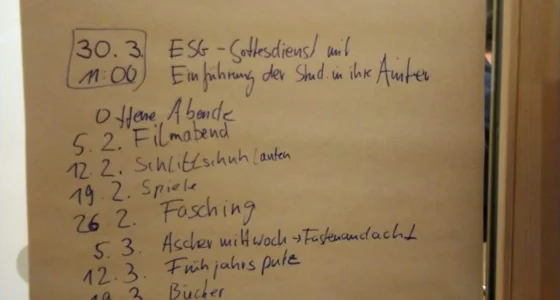 30. 3. ESG-Gottesdienst mit
11:00 Einführung der Stud. in ihre Ämter
Offene Abende
5. 2. Filmabend
12. 2. Schlittschuhlaufen
19. 2. Spiele
26 2. Fasching
5. 3. Aschermittwoch → Fastenandacht
12. 3. Frühjahrsputz
19 3. Bücher